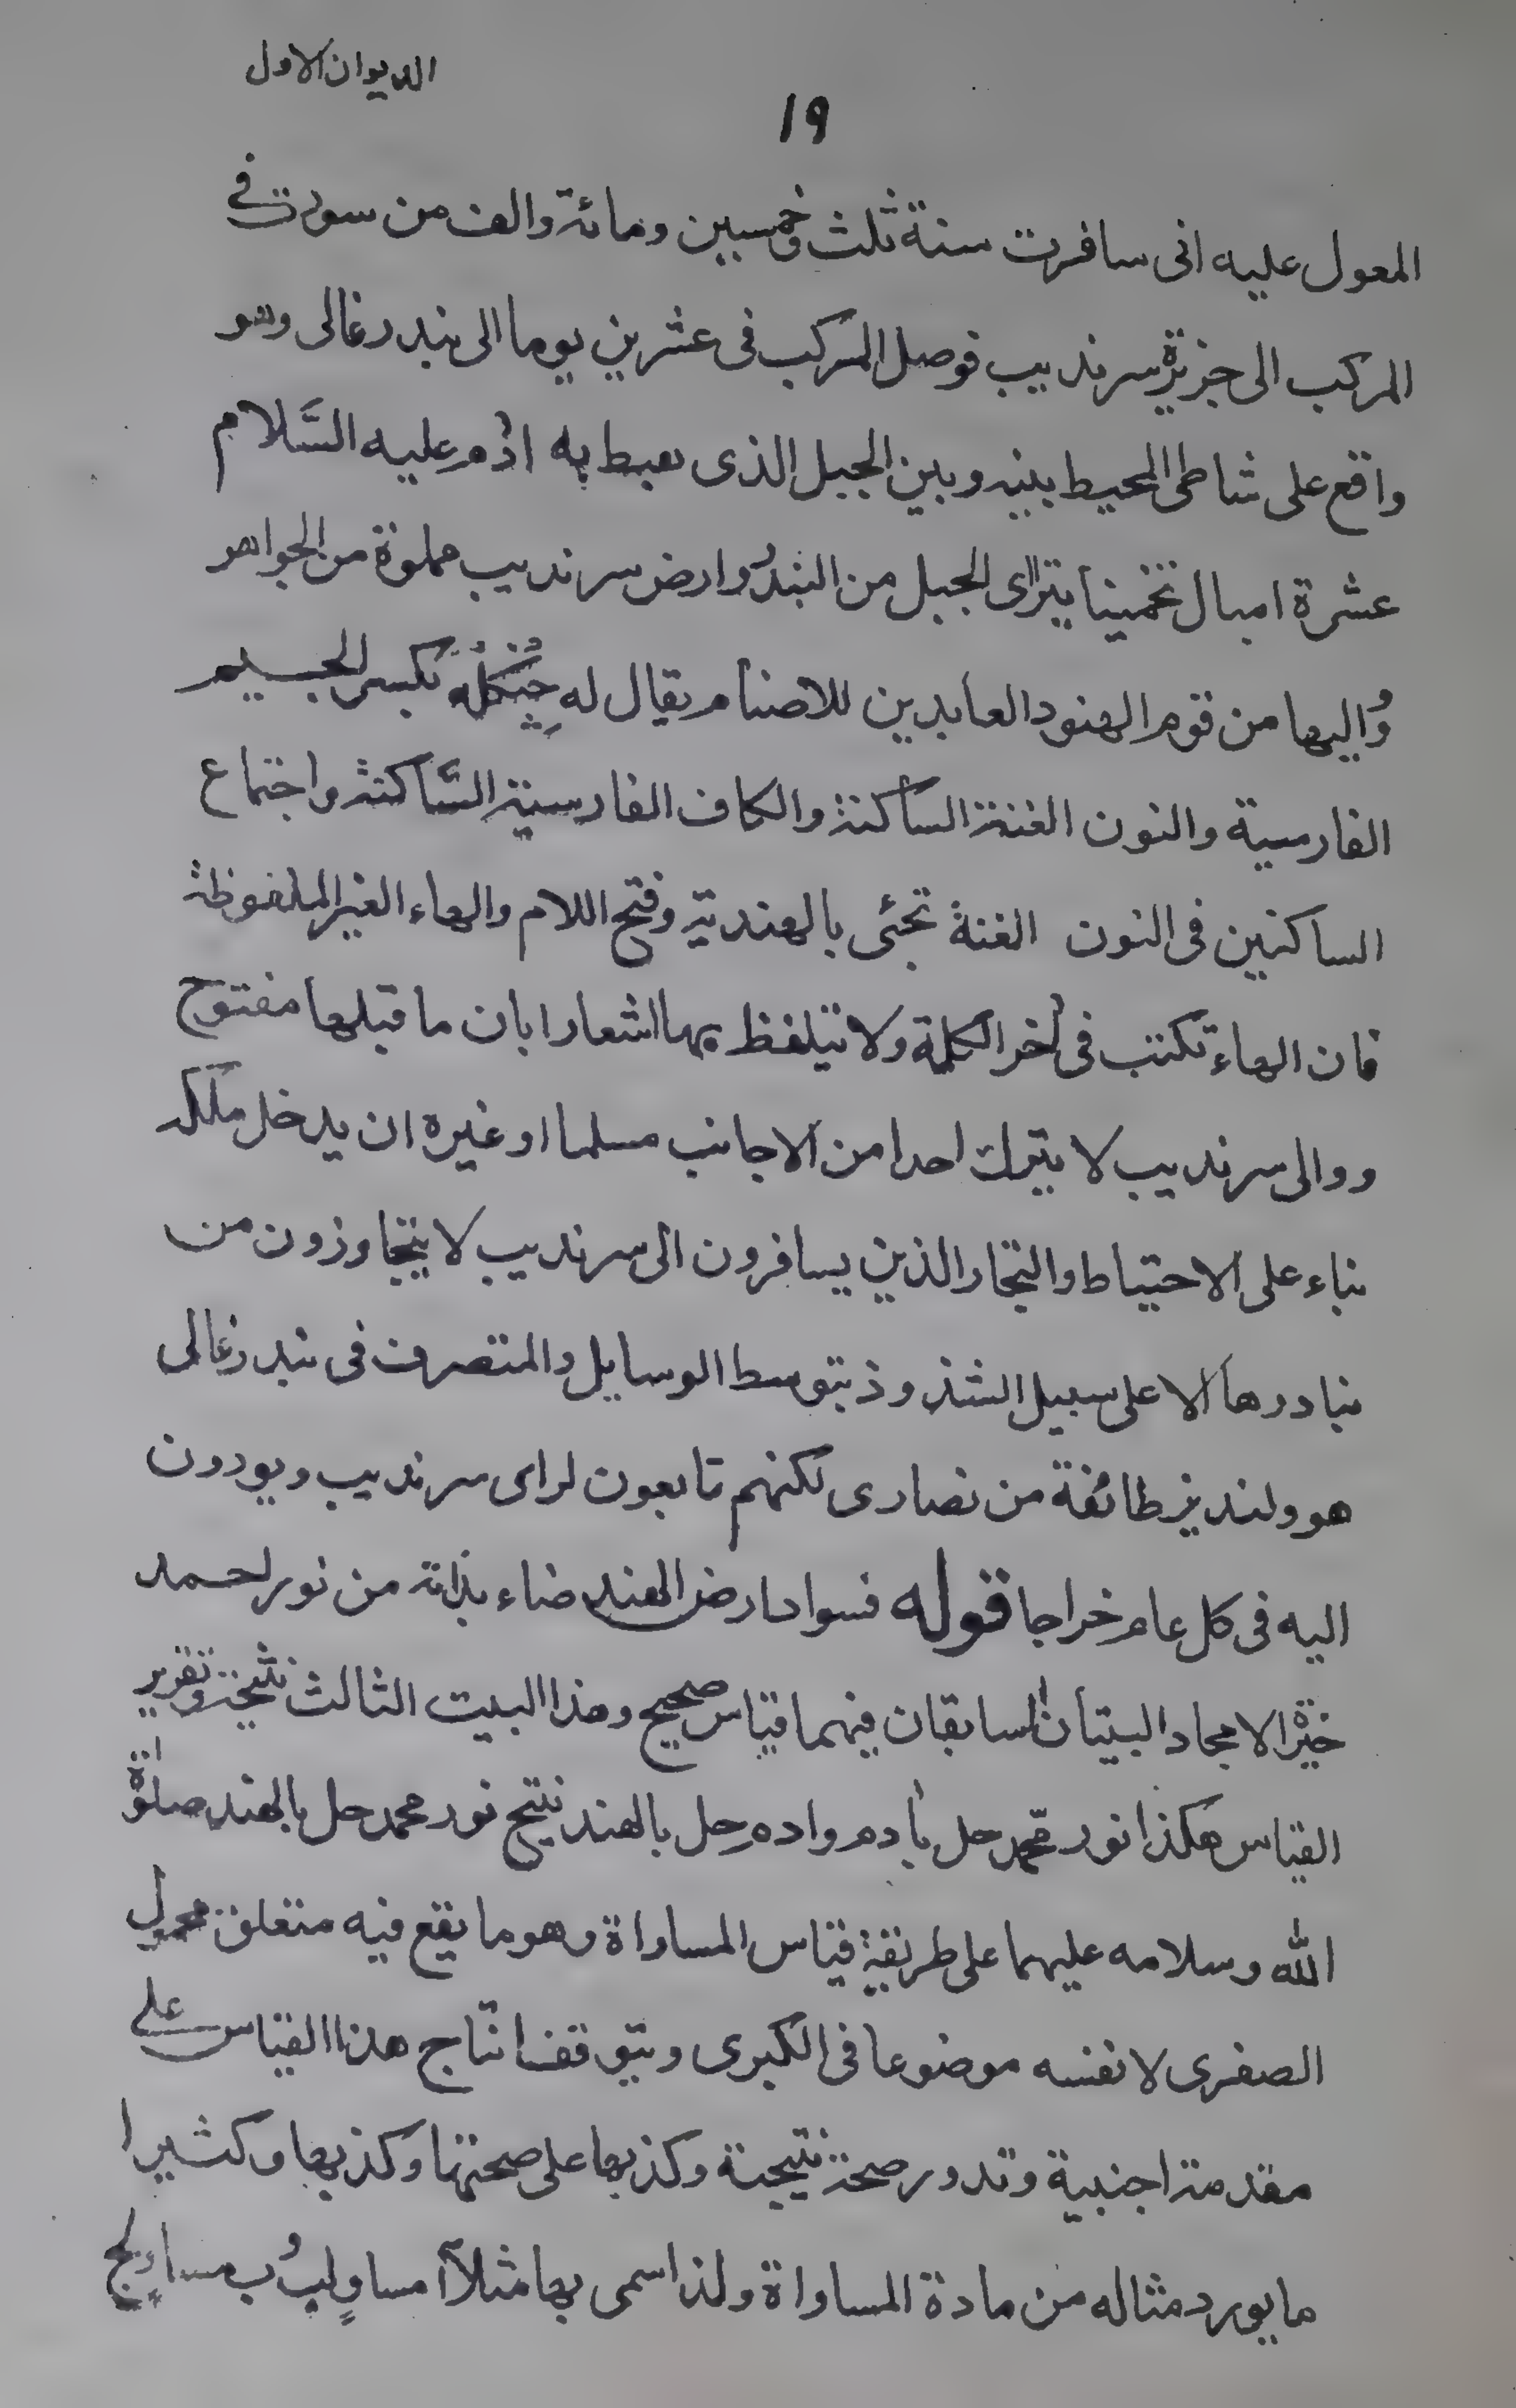 الديوان الاول
19
المعول عليه انى سافرت سنة ثلث وخمسين ومائة والف من سورت فى
المركب الى جزيرة سرنديب فوصل المركب فى عشرين يوما الى بندر غالى وهو
واقع على شاطى المحيط بينه وبين الجبل الذى هبط به ادم عليه السَّلام
عشرة اميال تخمينا يترااى الجبل من البندر وارض سرنديب مملوة من الجواهر
وواليها من قوم الهنود العابدين للاصنام يقال له چنگله بكسر الجسيم
الفارسية والنون الغنة الساكنة والكاف الفارسية السَّاكنة واجتماع
الساكنين فى النون الغنة تجئى بالهندية وفتح اللام والهاء الغير الملفوظة
فان الهاء تكتب فى اخر الكلمة ولا تتلفظ بها اشعارا بان ما قبلها مفتوح
ووالى سرنديب لا يترك احدا من الاجانب مسلما او غيره ان يدخل ملكه
بناء على الاحتياط والتجار الذين يسافرون الى سرنديب لا يتجاوزون من
بنادرها الا على سبيل الشذوذ بتوسط الوسايل والمتصرف فى بندر غالى
هو ولنديز طائفة من نصارى لكنهم تابعون لراى سرنديب ويودون
اليه فى كل عام خراجا قوله فسواد ارض الهند ضاء بذاته من نور احمد
خيرة الامجاد البيتان السابقان فيهما قياس صحيح وهذا البيت الثالث نتيجة وتقرير
القياس هكذا نور محمد حل بادم وادم حل بالهند نتيج نور محمد حل بالهند صلوة
الله وسلامه عليهما على طريقة قياس المساواة وهو ما يقع فيه متعلق محمول
الصغرى لا نفسه موضوعا فى الكبرى ويتوقف انتاج هذا القياس على
مقدمة اجنبية وتدور صحة نتيجة وكذبها على صحتها وكذبها وكثيرا
ما يورد مثاله من مادة المساواة ولذا سمى بها مثلا آ مساوٍ لب وب مساوٍ لج